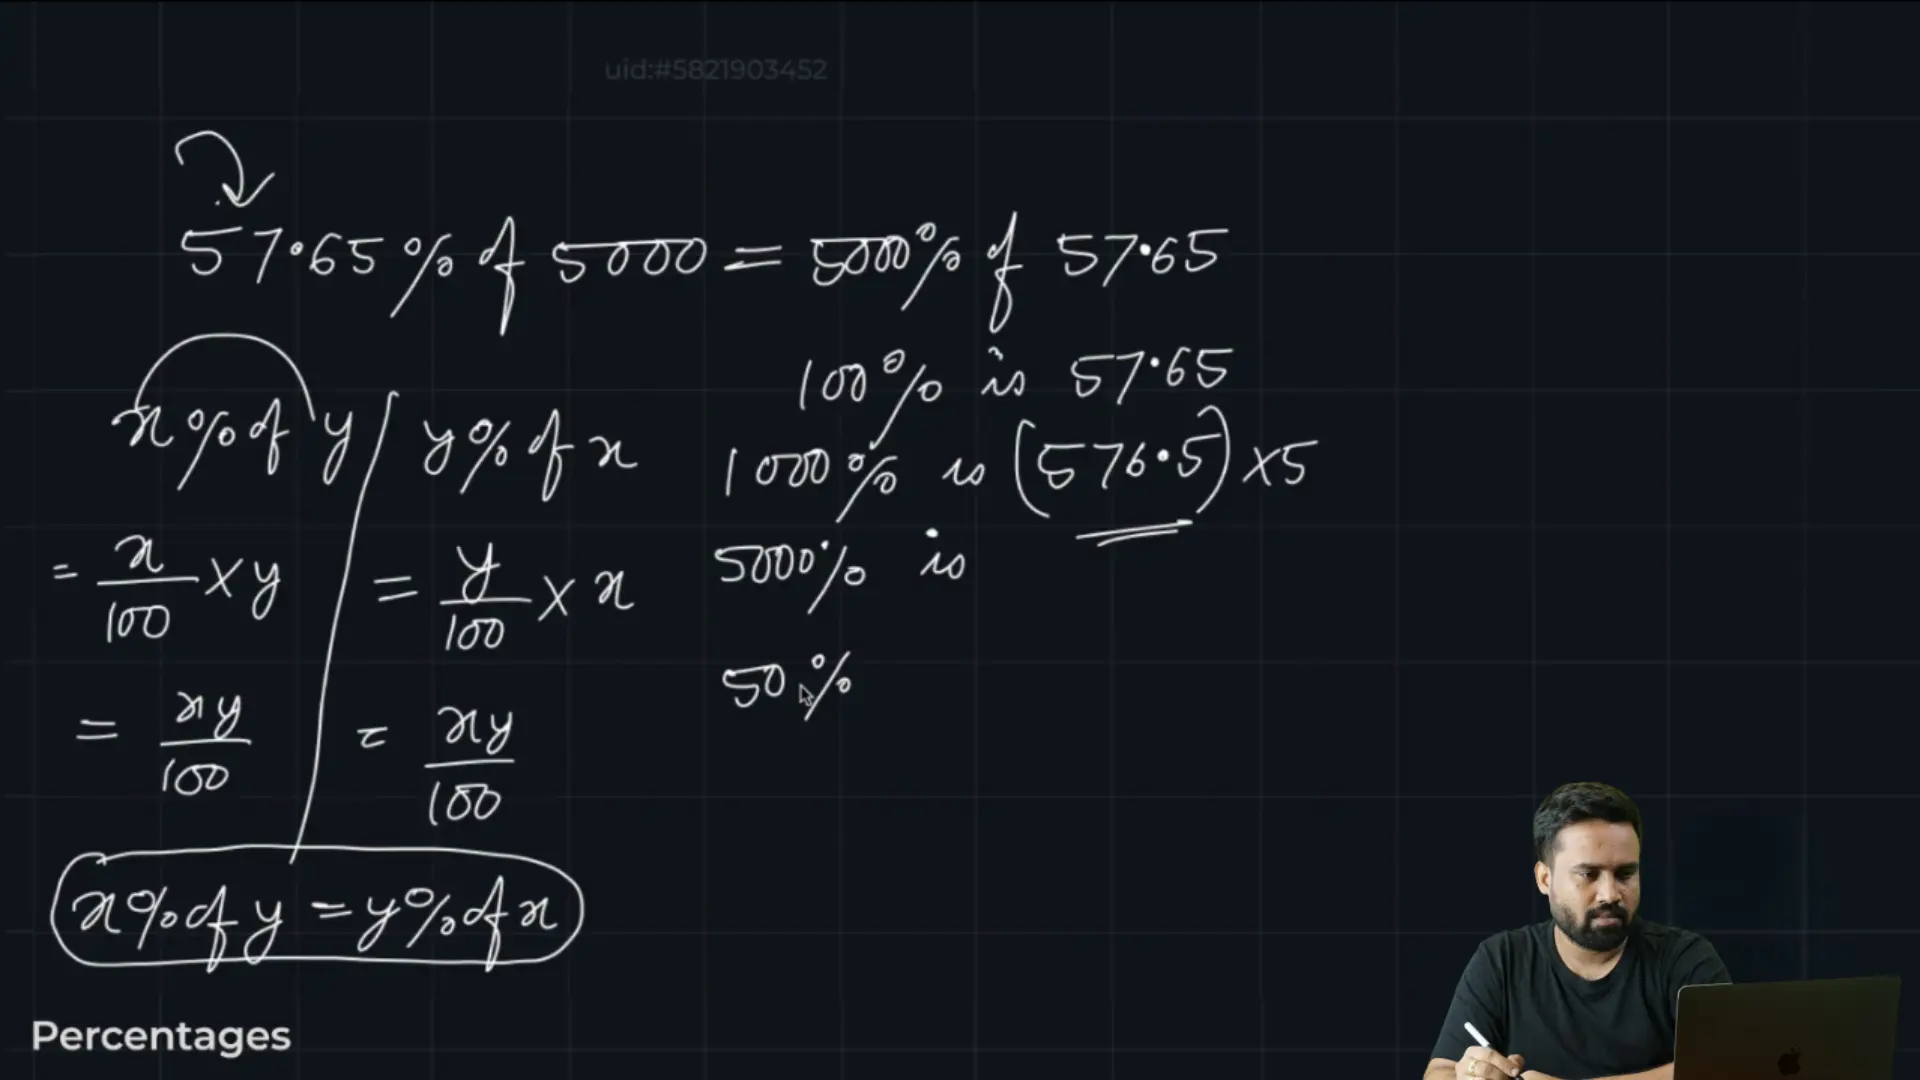 uid:#5821903452
57.65% of 5000 = 5000% of 57.65
100% is 57.65
x% of y / y% of x
1000% is (576.5) x5
= x/100 X y = y/100 X x
5000% is
50%
= xy/100 = xy/100
x% of y = y% of x
Percentages